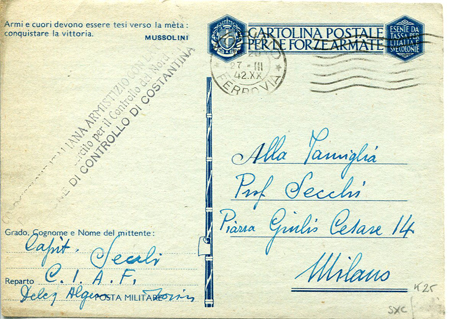 Armi e cuori devono essere tesi verso la mèta:
conquistare la vittoria.
MUSSOLINI
CARTOLINA POSTALE
PER LE FORZE ARMATE
ESENTE DA
TASSA PO
27-III
42.XX
FERROVIA
ITALIANA ARMISTIZIO
per il Controllo
DI CONTROLLO DI COSTANTINA
Alla Famiglia
Prof. Secchi
Piazza Giulio Cesare 14
Milano
Grado, Cognome e Nome del mittente:
Capit. Secchi
Reparto C. I. A. F.
POSTA MILITARE
K25
SXC